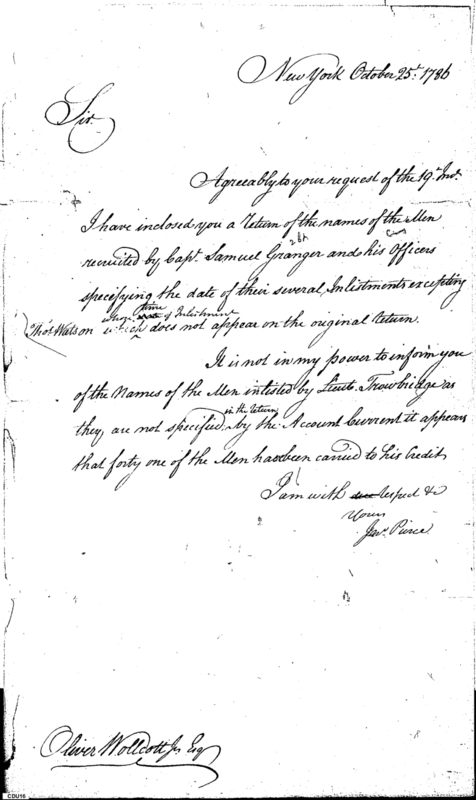 New York October 25t. 1786
Sir.
Agreeably to your request of the 19t. Inst.
I have inclosed you a return of the names of the Men
recruited by Capt. Samuel Granger and his Officers
specifying the date of their several Inlistments excepting
time
whose of Inlistment
Thos Watson which does not appear on the original return.
It is not in my power to inform you
of the Names of the Men inlisted by Lieut. Trowbridge as
in the return
they are not specified by the Account Current it appears
that forty one of the Men has been carried to his Credit
I am with due respect &c
Yours
Jno. Pierce
Oliver Wollcott Jr. Esq
CDU16